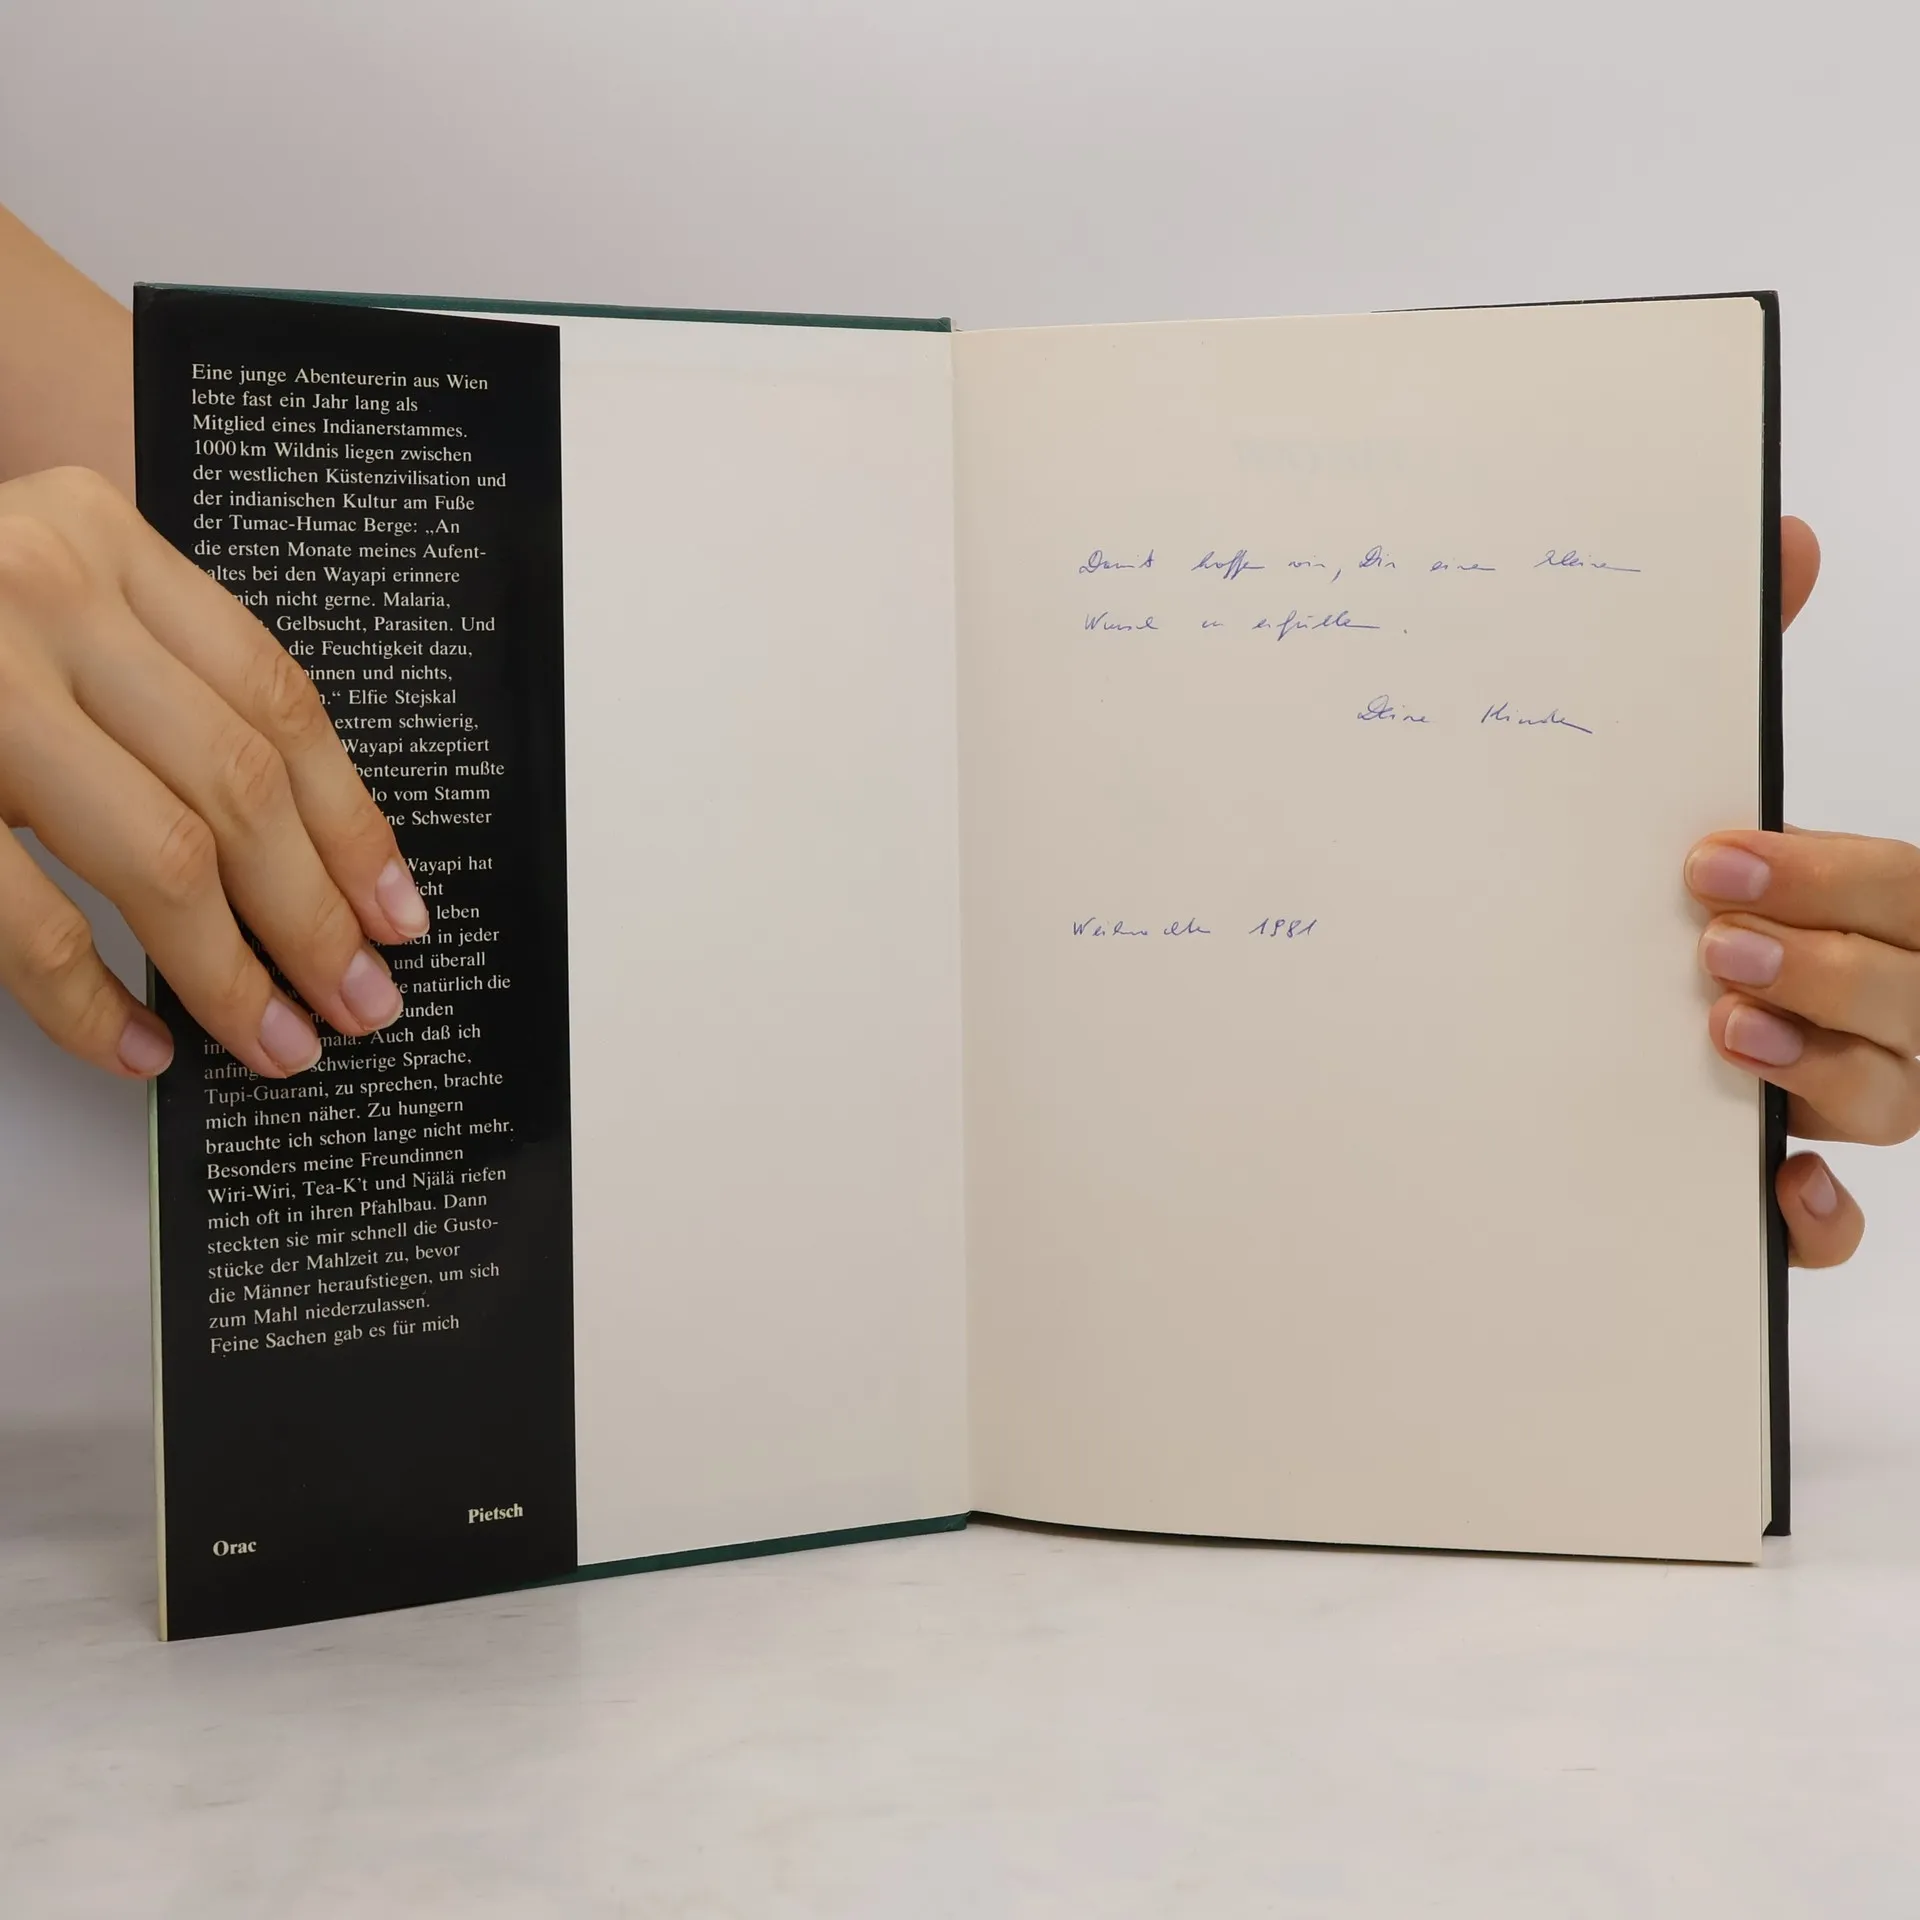 Eine junge Abenteurerin aus Wien
lebte fast ein Jahr lang als
Mitglied eines Indianerstammes.
1000 km Wildnis liegen zwischen
der westlichen Küstenzivilisation und
der indianischen Kultur am Fuße
der Tumac-Humac Berge: „An
die ersten Monate meines Aufent-
haltes bei den Wayapi erinnere
mich nicht gerne. Malaria,
Gelbsucht, Parasiten. Und
die Feuchtigkeit dazu,
und nichts,
“ Elfie Stejskal
extrem schwierig,
Wayapi akzeptiert
benteurerin mußte
vom Stamm
Schwester
Wayapi hat
leben
in jeder
und überall
natürlich die
Auch daß ich
schwierige Sprache,
Tupi-Guarani, zu sprechen, brachte
mich ihnen näher. Zu hungern
brauchte ich schon lange nicht mehr.
Besonders meine Freundinnen
Wiri-Wiri, Tea-K’t und Njälä riefen
mich oft in ihren Pfahlbau. Dann
steckten sie mir schnell die Gusto-
stücke der Mahlzeit zu, bevor
die Männer heraufstiegen, um sich
zum Mahl niederzulassen.
Feine Sachen gab es für mich
Orac
Pietsch
Damit hoffen wir, Dir einen kleinen
Wunsch zu erfüllen.
Deine Kinder
Weihnachten 1981